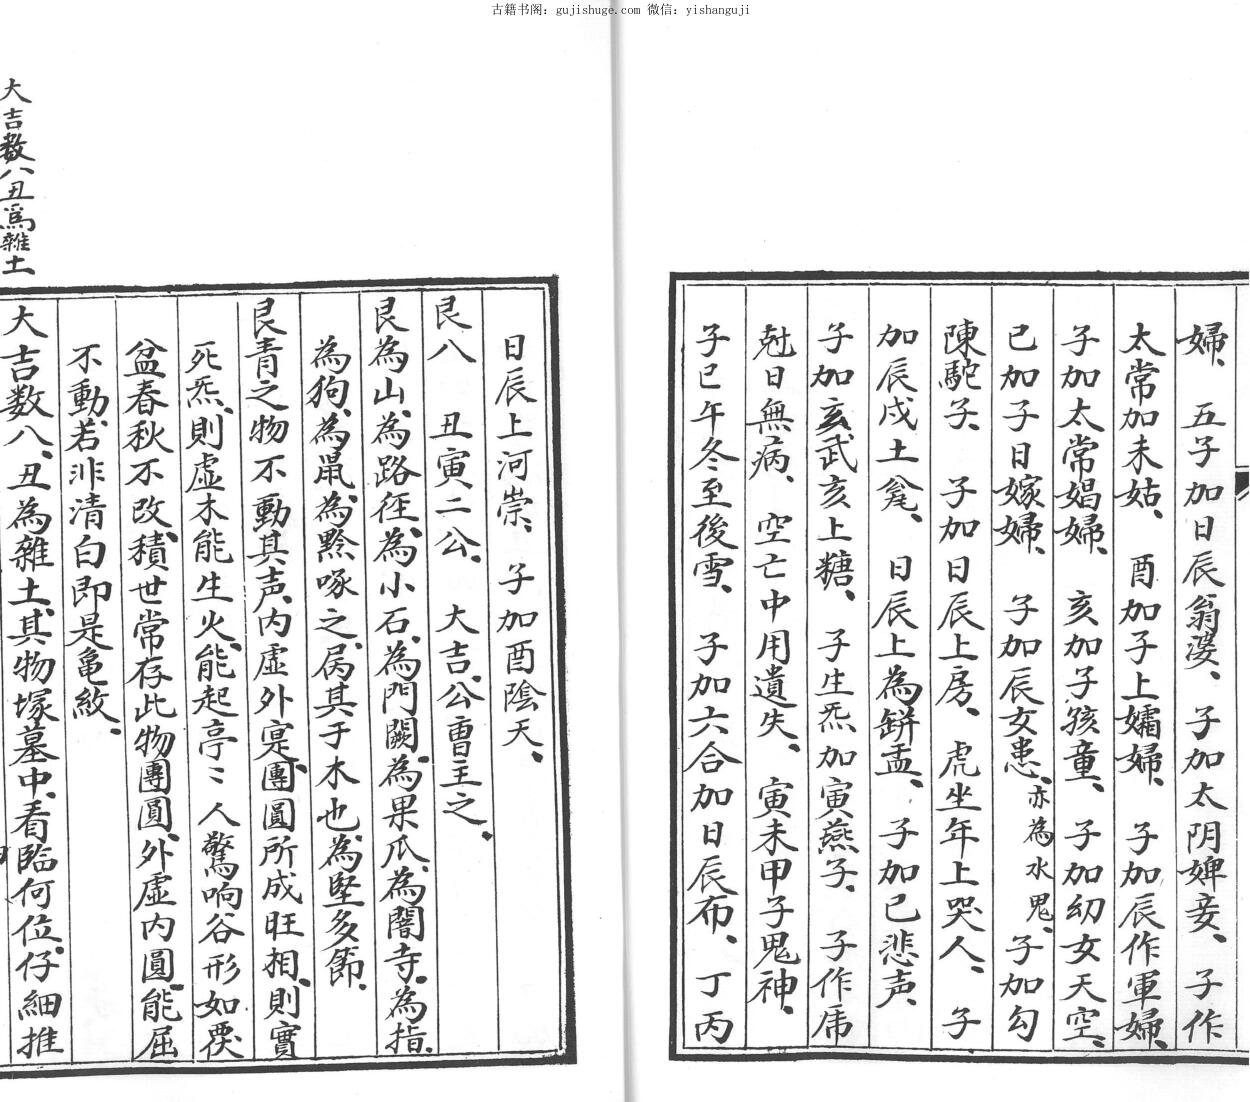 古籍书阁：gujishuge.com 微信：yishanguji
婦、五子加日辰翁婆、子加太阴婢妾、子作
太常加未姑、酉加子上孀婦、子加辰作軍婦、
子加太常娼婦、亥加子孩童、子加幼女天空、
已加子日嫁婦、子加辰女患、亦為水鬼、子加勾
陳駝子、子加日辰上房、虎坐年上哭人、子
加辰戌土瓮、日辰上為缾盂、子加已悲声、
子加亥武亥上糖、子生炁加寅燕子、子作虎
尅日無病、空亡中用遺失、寅未甲子鬼神、
子巳午冬至後雪、子加六合加日辰布、丁丙
日辰上河祟、子加酉陰天、
艮八 丑寅二公、大吉、公曹主之、
艮為山、為路徑、為小石、為門闕、為果瓜、為閽寺、為指、
為狗、為鼠、為黔喙之屬、其于木也、為堅多節、
艮青之物不動其声、内虛外寔、團圓所成旺相、則實
死炁、則虛木能生火、能起亭〻人驚响谷形如
盆春秋不改、積世常存此物團圓、外虛内圓、能屈
不動、若非清白即是亀紋、
大吉数八、丑為雜土、其物塚墓中、看臨何位、仔細推
大吉數八丑爲雜土